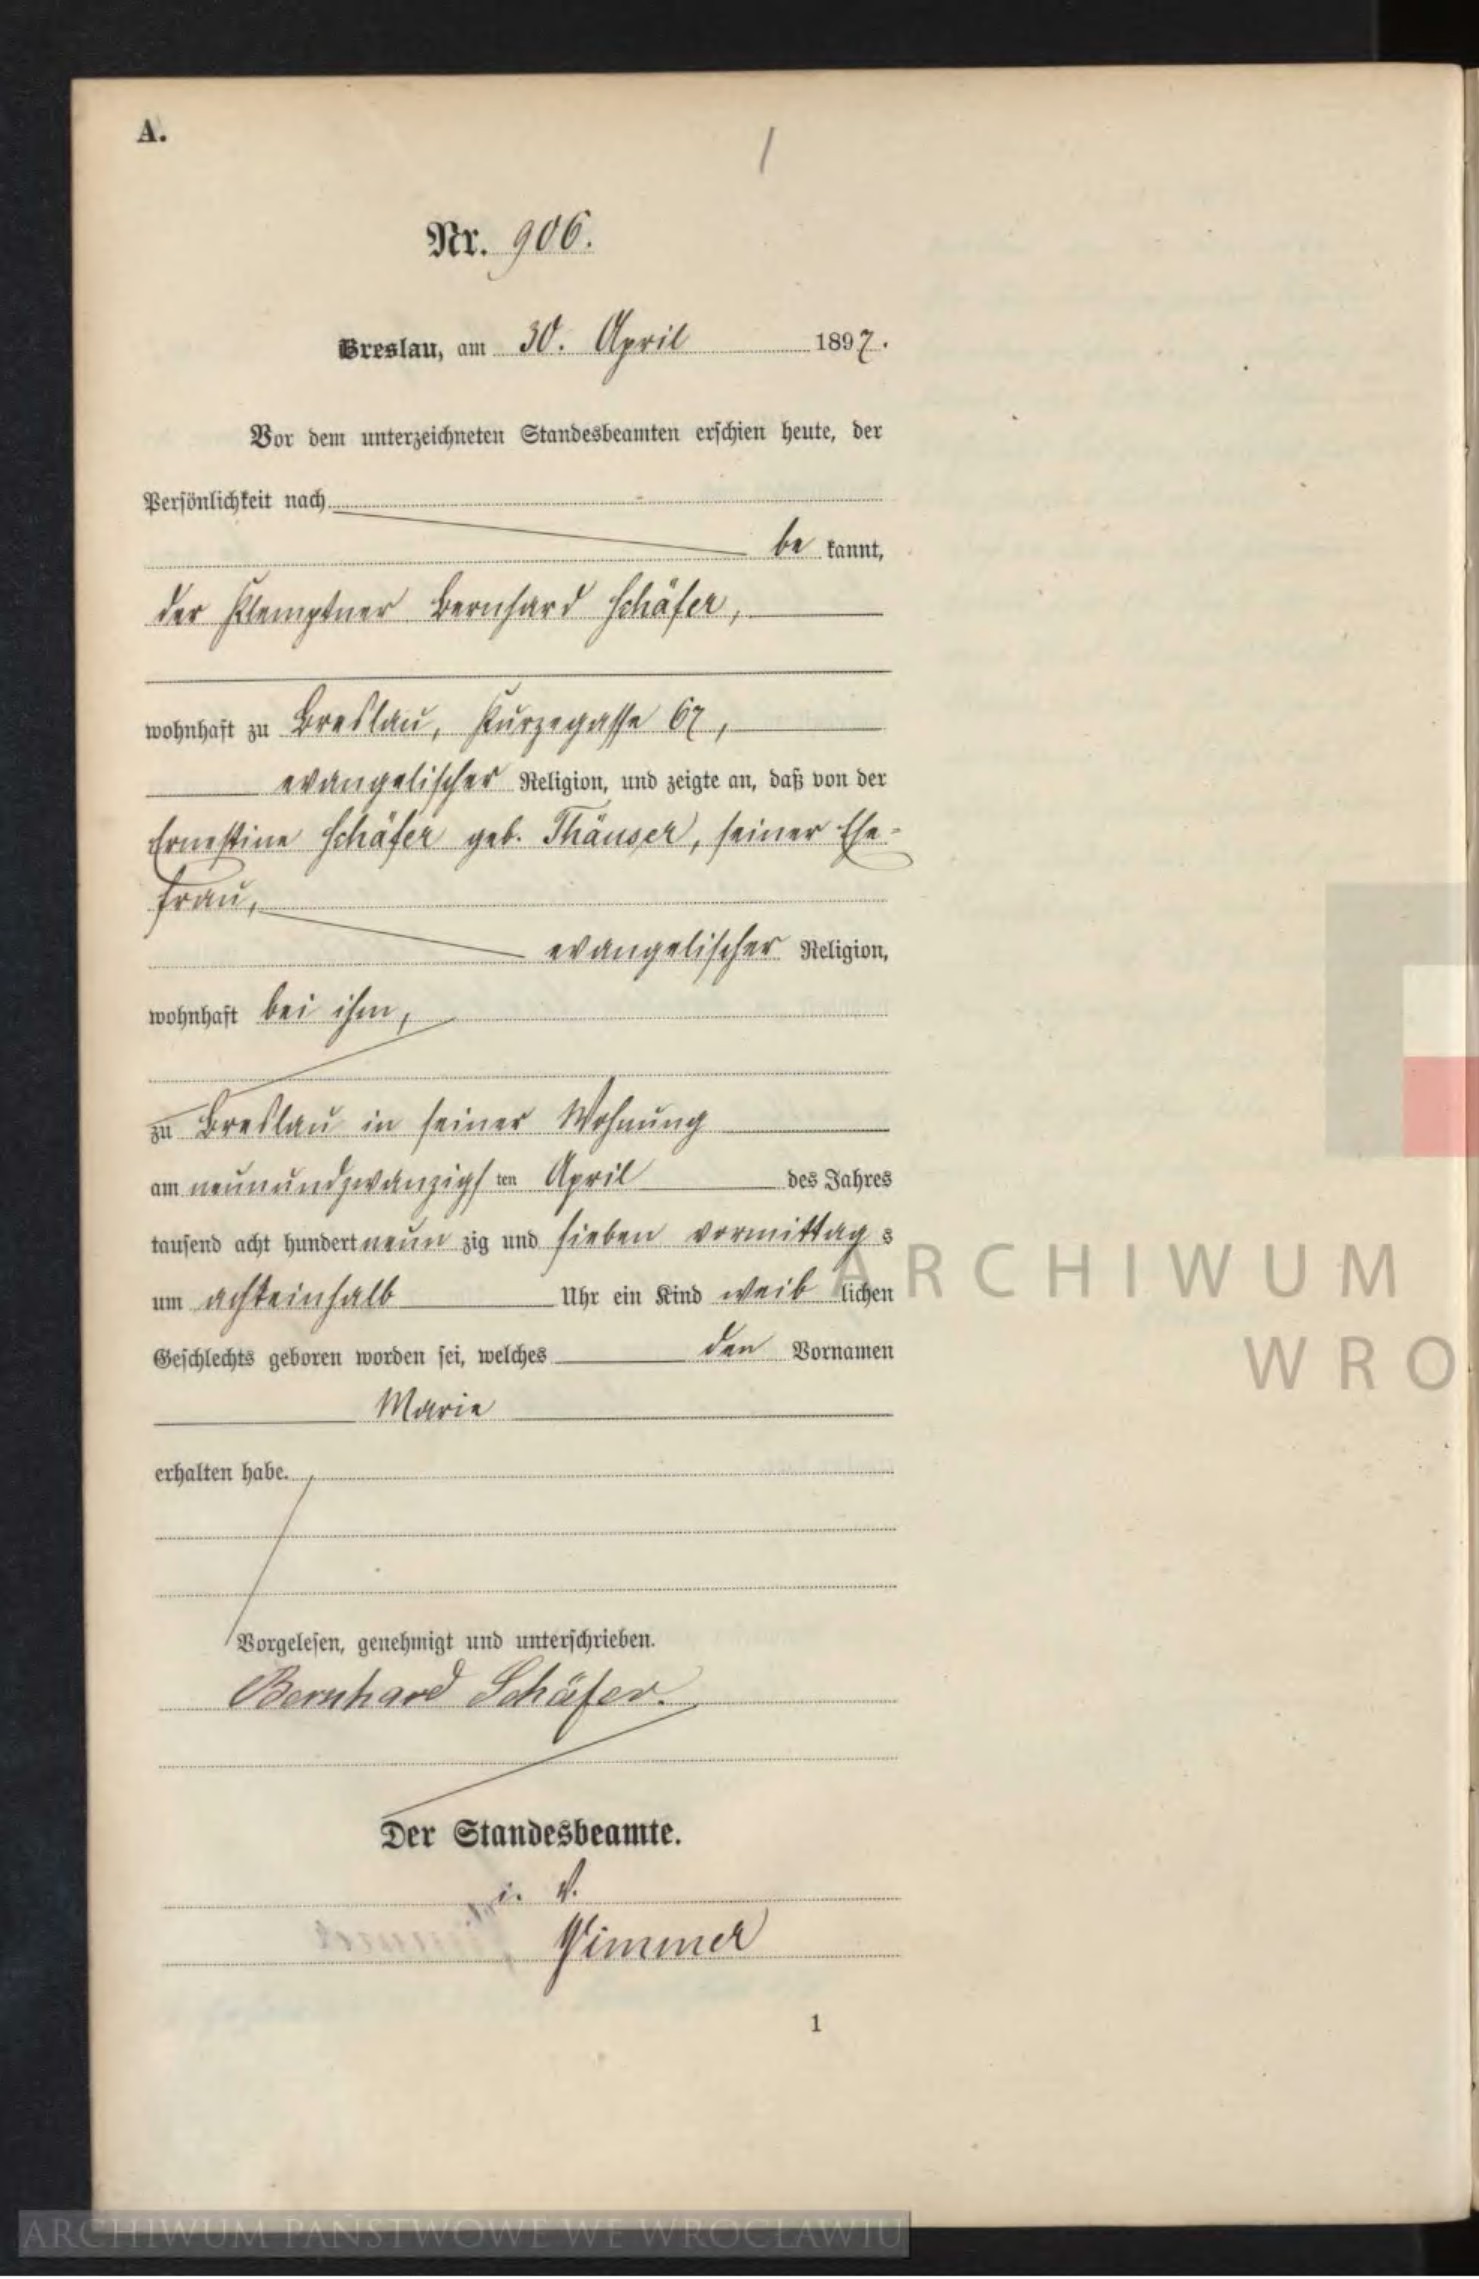 A.
1
Nr. 906.
Breslau, am 30. April 1897.
Vor dem unterzeichneten Standesbeamten erschien heute, der
Persönlichkeit nach
be kannt,
der Klemptner Bernhard Schäfer,
wohnhaft zu Breslau, Kurzegasse 67,
evangelischer Religion, und zeigte an, daß von der
Ernestine Schäfer geb. Thäuser, seiner Ehe-
frau,
evangelischer Religion,
wohnhaft bei ihm,
zu Breslau in seiner Wohnung
am neunundzwanzigs ten April des Jahres
tausend acht hundert neun zig und sieben vormittag s
um achteinhalb Uhr ein Kind weib lichen
Geschlechts geboren worden sei, welches den Vornamen
Marie
erhalten habe.
Vorgelesen, genehmigt und unterschrieben.
Bernhard Schäfer.
Der Standesbeamte.
i. V.
1
ARCHIWUM
WRO
ARCHIWUM PAŃSTWOWE WE WROCŁAWIU